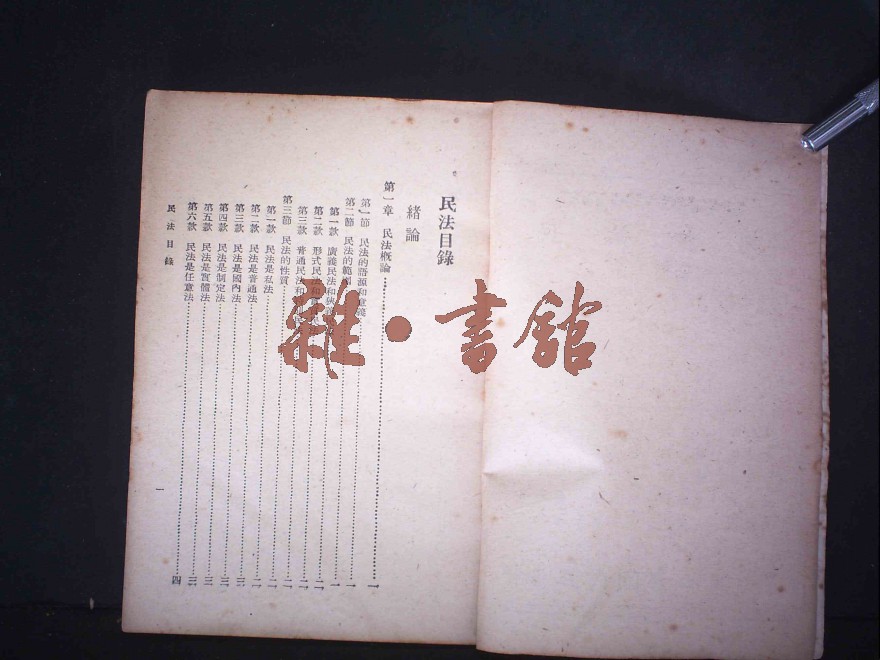 民法目錄
緒論
第一章 民法概論……一
第一節 民法的語源和意義……一
第二節 民法的範圍……一
第一款 廣義民法和狹……一
第二款 形式民法和……二
第三款 普通民法和……二
第三節 民法的性質……二
第一款 民法是私法……二
第二款 民法是普通法……二
第三款 民法是國內法……三
第四款 民法是制定法……三
第五款 民法是實體法……三
第六款 民法是任意法……四
民法目錄
一
雜·書館